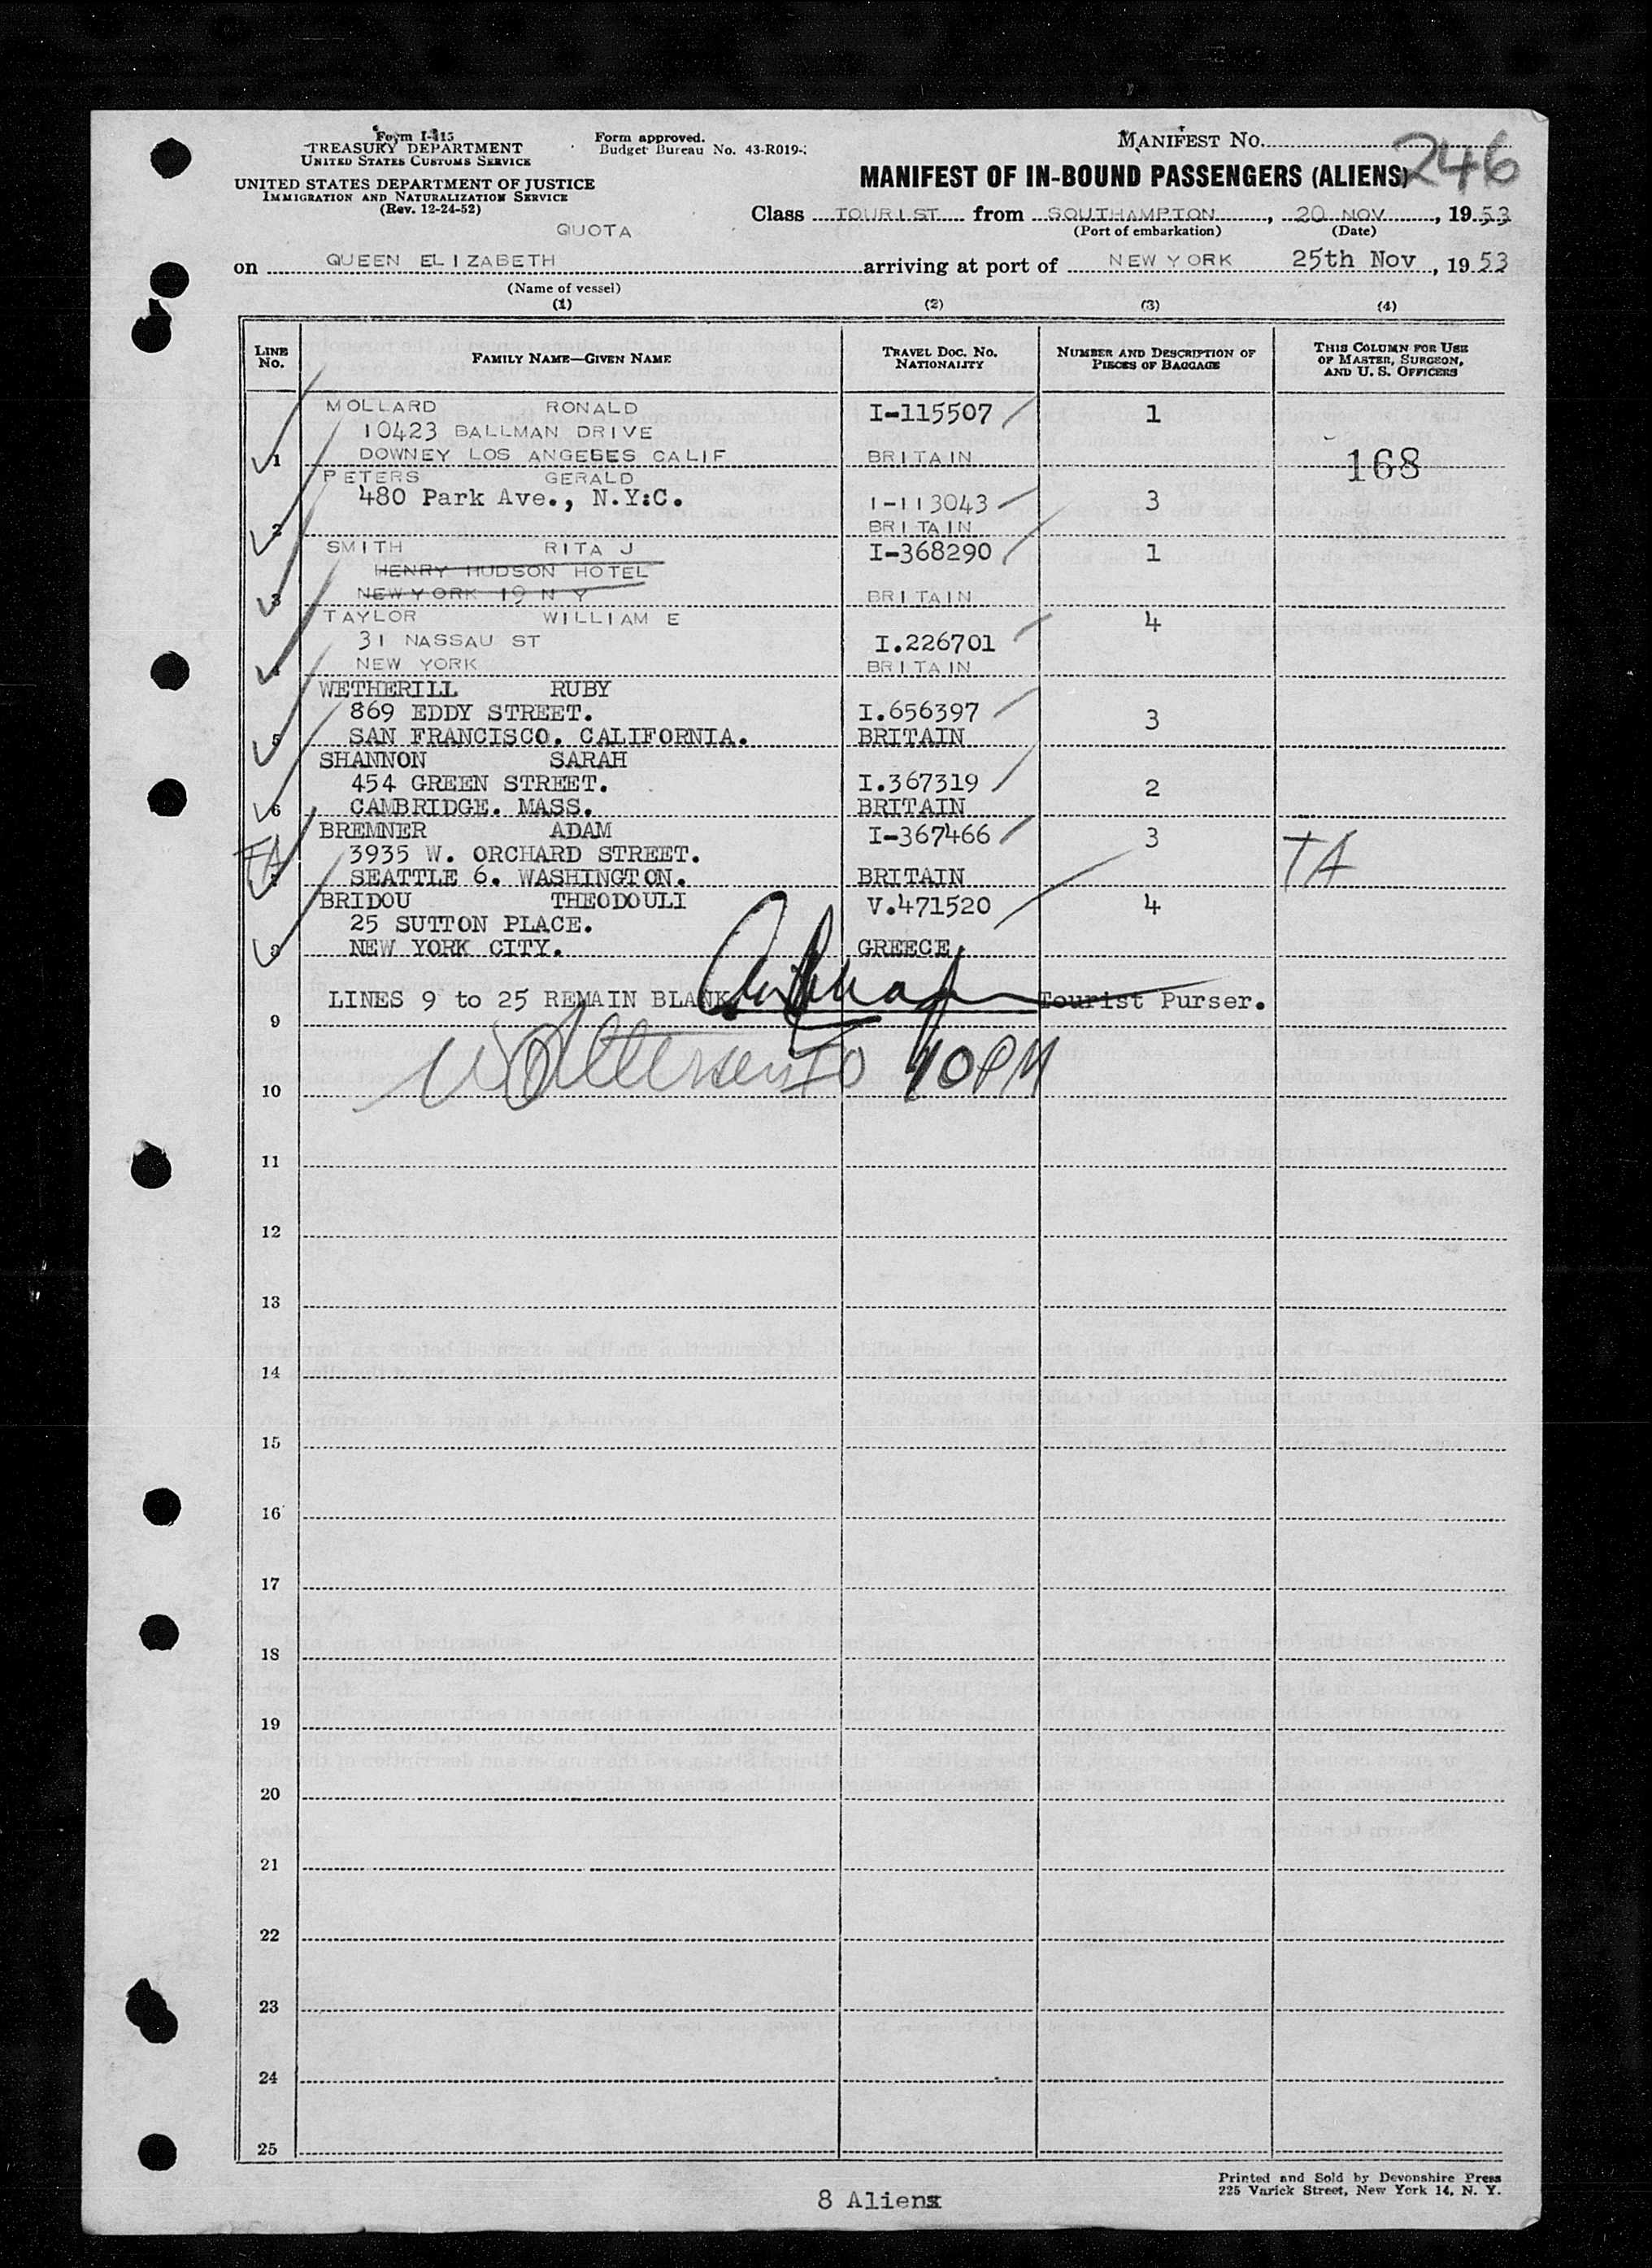 Form I-415
TREASURY DEPARTMENT
UNITED STATES CUSTOMS SERVICE
UNITED STATES DEPARTMENT OF JUSTICE
IMMIGRATION AND NATURALIZATION SERVICE
(Rev. 12-24-52)
Form approved.
Budget Bureau No. 43-R019-
MANIFEST No.
246
MANIFEST OF IN-BOUND PASSENGERS (ALIENS)
Class TOURIST from SOUTHAMPTON, 20 NOV, 1953
(Port of embarkation) (Date)
QUOTA
on QUEEN ELIZABETH arriving at port of NEW YORK 25th Nov, 1953
(Name of vessel)
(1) (2) (3) (4)
LINE No. FAMILY NAME—GIVEN NAME TRAVEL DOC. NO. NATIONALITY NUMBER AND DESCRIPTION OF PIECES OF BAGGAGE THIS COLUMN FOR USE OF MASTER, SURGEON, AND U. S. OFFICERS
MOLLARD RONALD I-115507 1
10423 BALLMAN DRIVE
1 DOWNEY LOS ANGEGES CALIF BRITAIN 168
PETERS GERALD
480 Park Ave., N.Y:C. I-113043 3
2 BRITAIN
SMITH RITA J I-368290 1
HENRY HUDSON HOTEL
3 NEW YORK 19 N Y BRITAIN
TAYLOR WILLIAM E 4
31 NASSAU ST I.226701
4 NEW YORK BRITAIN
WETHERILL RUBY
869 EDDY STREET. I.656397 3
5 SAN FRANCISCO. CALIFORNIA. BRITAIN
SHANNON SARAH
454 GREEN STREET. I.367319 2
6 CAMBRIDGE. MASS. BRITAIN
BREMNER ADAM I-367466 3
TA 3935 W. ORCHARD STREET. TA
7 SEATTLE 6. WASHINGTON. BRITAIN
BRIDOU THEODOULI V.471520 4
25 SUTTON PLACE.
8 NEW YORK CITY. GREECE
LINES 9 to 25 REMAIN BLANK Tourist Purser.
9
10PM
10
11
12
13
14
15
16
17
18
19
20
21
22
23
24
25
8 Aliens
Printed and Sold by Devonshire Press
225 Varick Street, New York 14, N. Y.